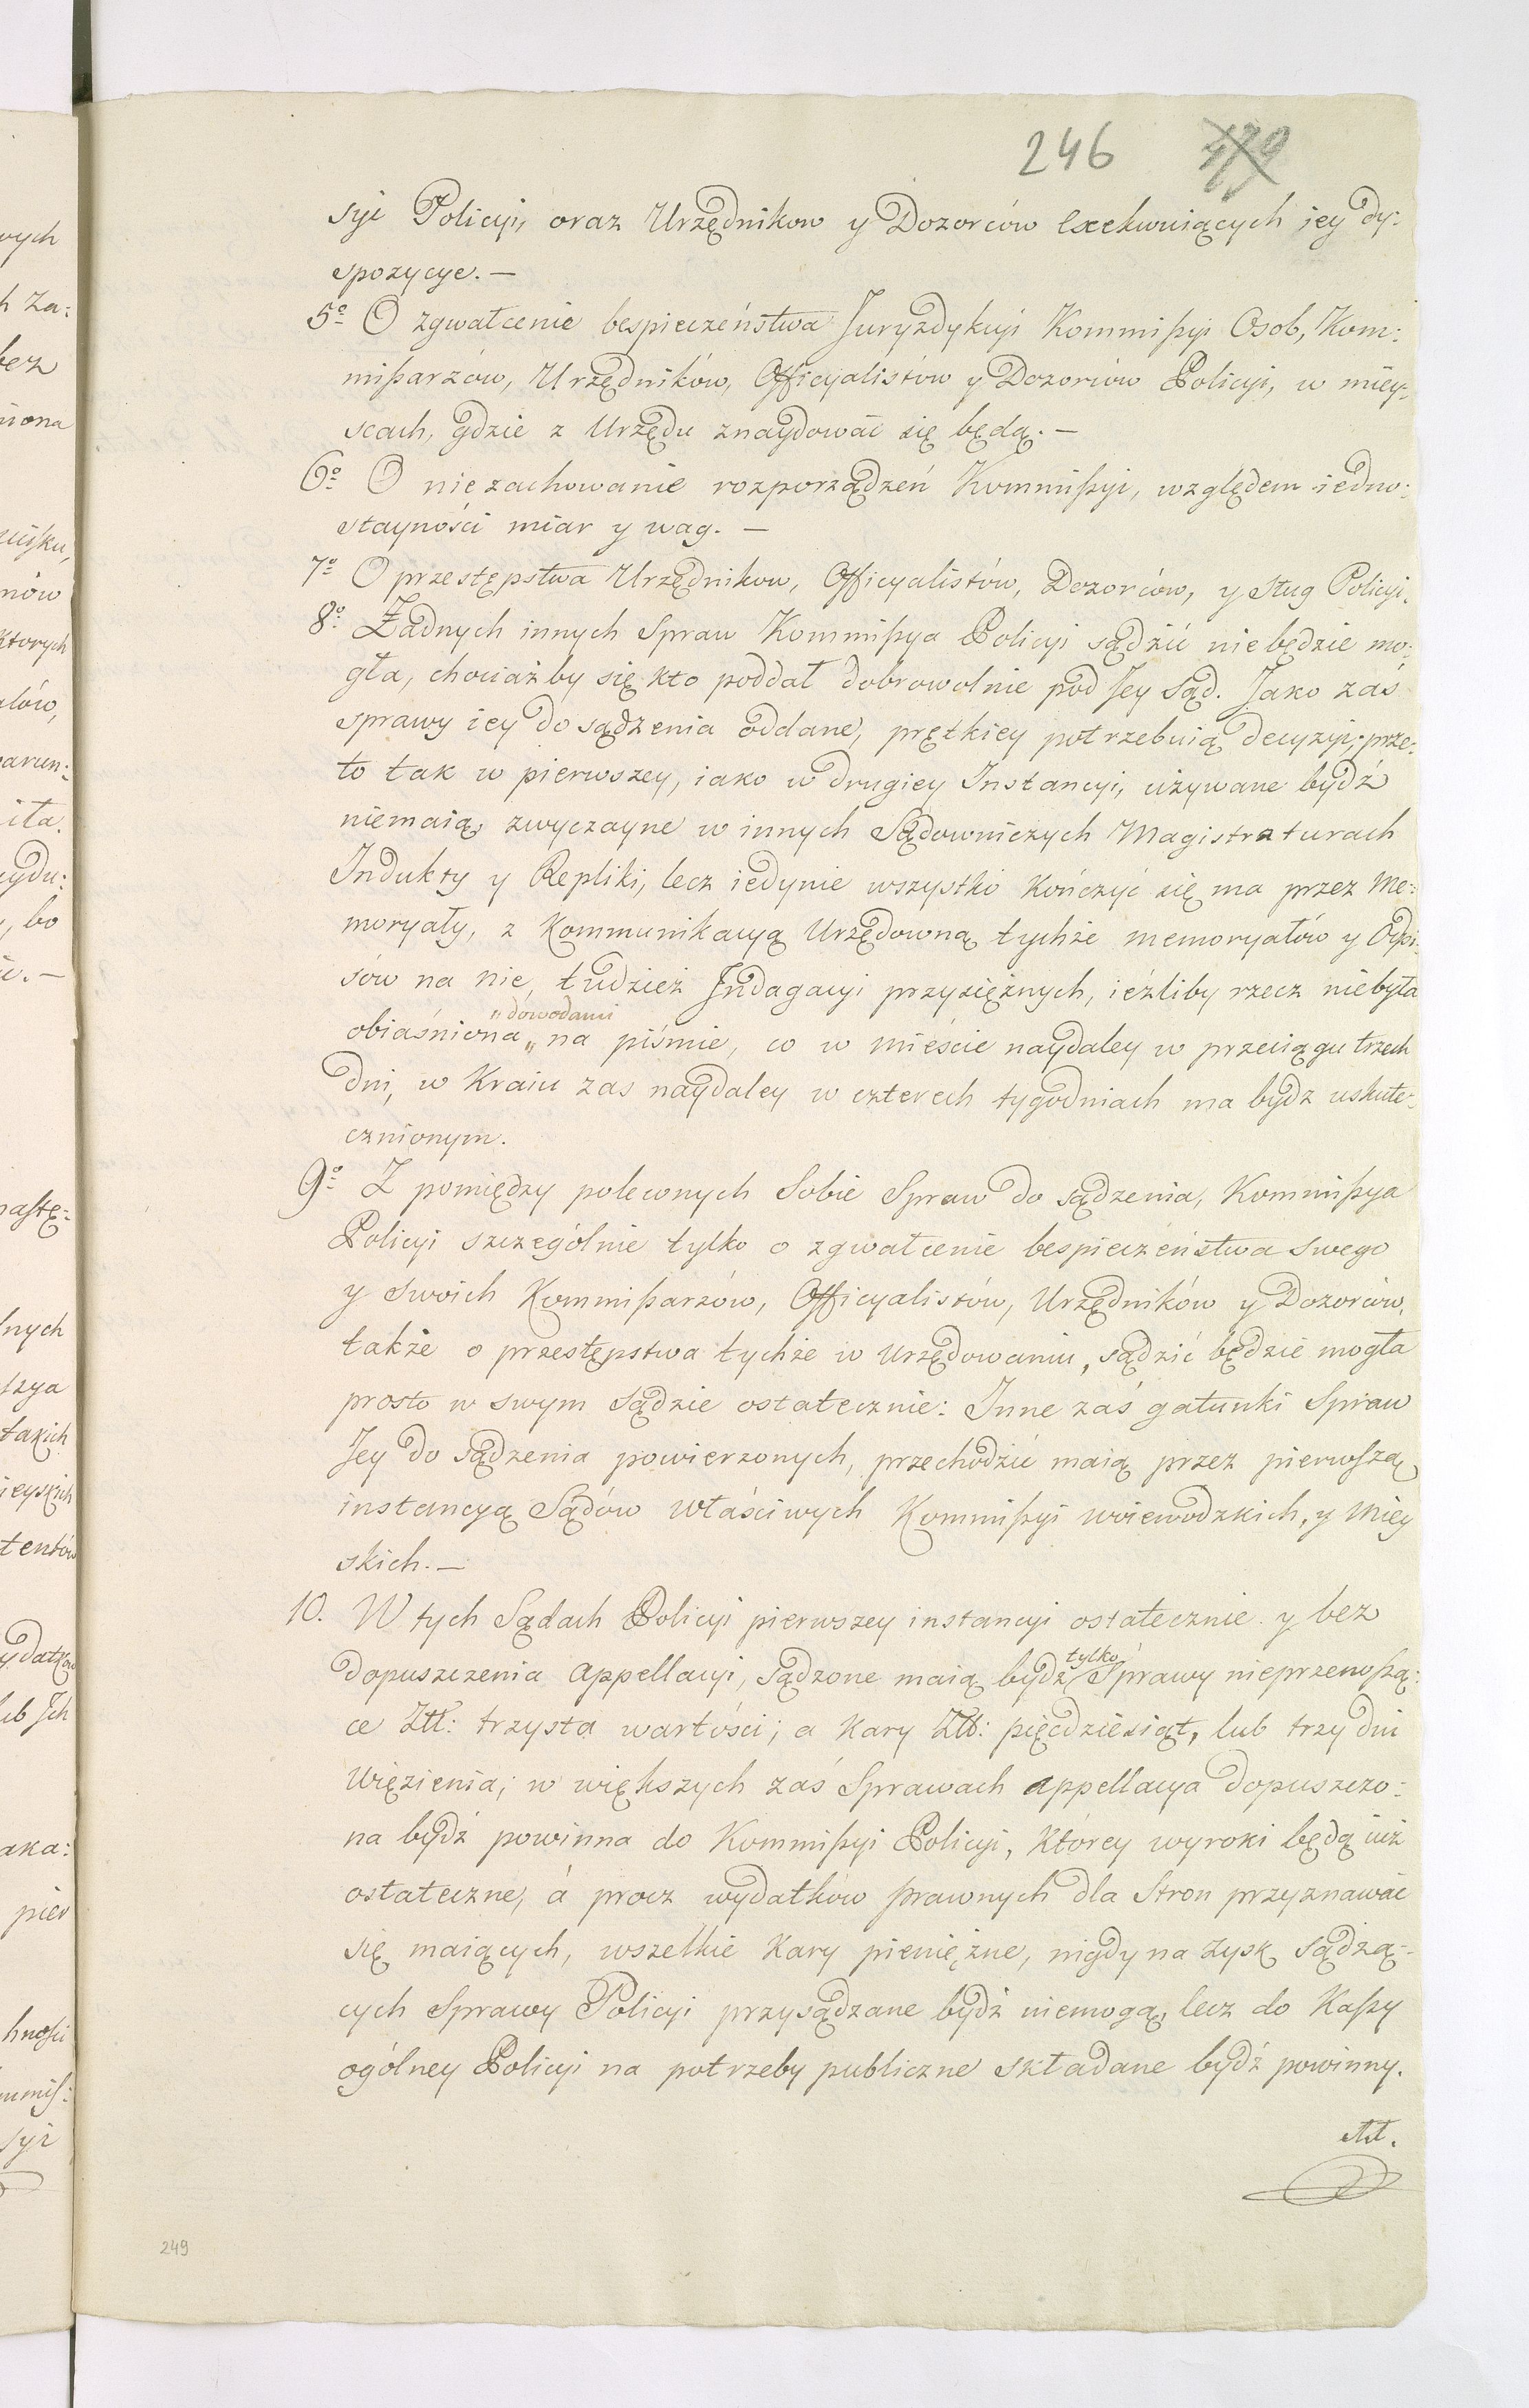 246 439
syi Policyi, oraz Urzędnikow y Dozorców exekwuiących iey dy:
spozycye. —
5º O zgwałcenie bespieczeństwa Juryzdykcyi Kommißyi Osob, Kom:
mißarzów, Urzędników, Officyalistów y Dozorców Policyi, w miey:
scach, gdzie z Urzędu znaydować się będą. —
6º O niezachowanie rozporządzeń Kommißyi, względem iedno:
stayności miar y wag. —
7º O przestępstwa Urzędnikow, Officyalistów, Dozorców, y sług Policyi.
8º Żadnych innych Spraw Kommißya Policyi sądzić niebędzie mo:
gła, chociażby się kto poddał dobrowolnie pod Jey Sąd. Jako zaś
sprawy iey do sądzenia oddane, prętkiey potrzebuią decyzyi, prze:
to tak w pierwszey, iako w drugiey Instancyi, używane bydź
niemaią, zwyczayne w innych Sądowniczych Magistraturach
Indukty y Repliki, lecz iedynie wszystko kończyć się ma przez Me:
moryały, z Kommunikacyą Urzędowną tychże memoryałów y Odpi:
sów na nie, tudzież Jndagacyi przysiężnych, ieźliby rzecz niebyła
"dowodami
obiaśniona „ na piśmie, co w mieście naydaley w przeciągu trzech
dni, w Kraiu zas naydaley w czterech tygodniach ma bydz uskute:
cznionym.
9º Z pomiędzy poleconych Sobie Spraw do sądzenia, Kommißya
Policyi szczególnie tylko o zgwałcenie bespieczeństwa swego
y swoich Kommißarzów, Officyalistów, Urzędników y Dozorców,
także o przestępstwa tychże w Urzędowaniu, sądzić będzie mogła
prosto w swym sądzie ostatecznie: Inne zaś gatunki Spraw
Jey do sądzenia powierzonych, przechodzić maią przez pierwszą
instancyą Sądów właściwych Kommißyi woiewodzkich, y Miey
skich. —
10. W tych Sądach Policyi pierwszey instancyi ostatecznie y bez
tylko
dopuszczenia appellacyi, sądzone maią bydz Sprawy nieprzenoszą:
ce Złł: trzysta wartości; a Kary Złł: pięćdziesiąt, lub trzy dni
Więzienia; w większych zaś Sprawach appellacya dopuszczo:
na bydź powinna do Kommißyi Policyi, którey wyroki będą iuż
ostateczne, á procz wydatkow prawnych dla Stron przyznawać
się maiących, wszelkie Kary pieniężne, nigdy na zysk sądzą:
cych Sprawy Policyi przysądzane bydź niemogą, lecz do Kaßy
ogólney Policyi na potrzeby publiczne składane bydź powinny.
249